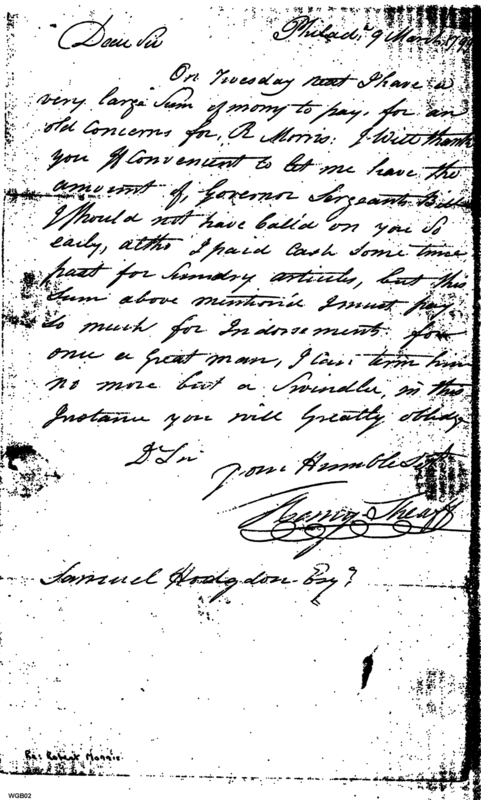 Philad.ᵃ 9 March 179
Dear Sir
On Tuesday next I have a
very large Sum of mony to pay, for an
old Concerns for, R Morris: I Will thank
you If Convenient to let me have the
amount of, Governor Sergeants Bill
I Should not have Call'd on you So
early, altho I paid Cash some time
past for Sundry articles, but this
Sum above mentioned I must pay
So much for Indorsements for
once a Great man, I Can term him
no more but a Swindler, in this
Instance you will Greatly oblidge
Dʳ Sir
your Humble Sert
Henry
Samuel Hodgdon Esqʳ
Re: Robert Morris
WGB02